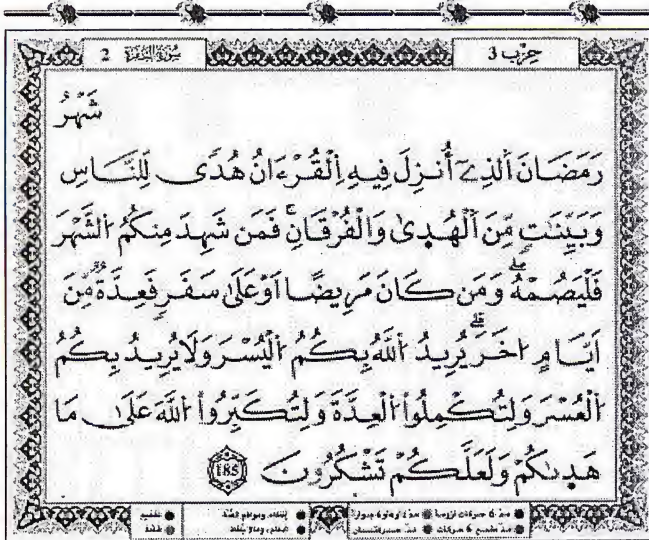 سُورَةُ الْبَقَرَةِ 2
حِزْب 3
شَهْرُ
رَمَضَانَ اَلذِےٓ أُنزِلَ فِيهِ اِلْقُرْءَانُ هُدًى لِّلنَّاسِ
وَبَيِّنَٰتٍ مِّنَ اَلْهُدٜىٰ وَالْفُرْقَانِۖ فَمَن شَهِدَ مِنكُمُ اُلشَّهْرَ
فَلْيَصُمْهُۖ وَمَن كَانَ مَرِيضًا اَوْ عَلَىٰ سَفَرٍ فَعِدَّةٌ مِّنَ
اَيَّامٍ اُخَرَۖ يُرِيدُ اُللَّهُ بِكُمُ اُلْيُسْرَ وَلَا يُرِيدُ بِكُمُ
اُلْعُسْرَ وَلِتُكْمِلُواْ اُلْعِدَّةَ وَلِتُكَبِّرُواْ اُللَّهَ عَلَىٰ مَا
هَدٜىٰكُمْ وَلَعَلَّكُمْ تَشْكُرُونَ 185